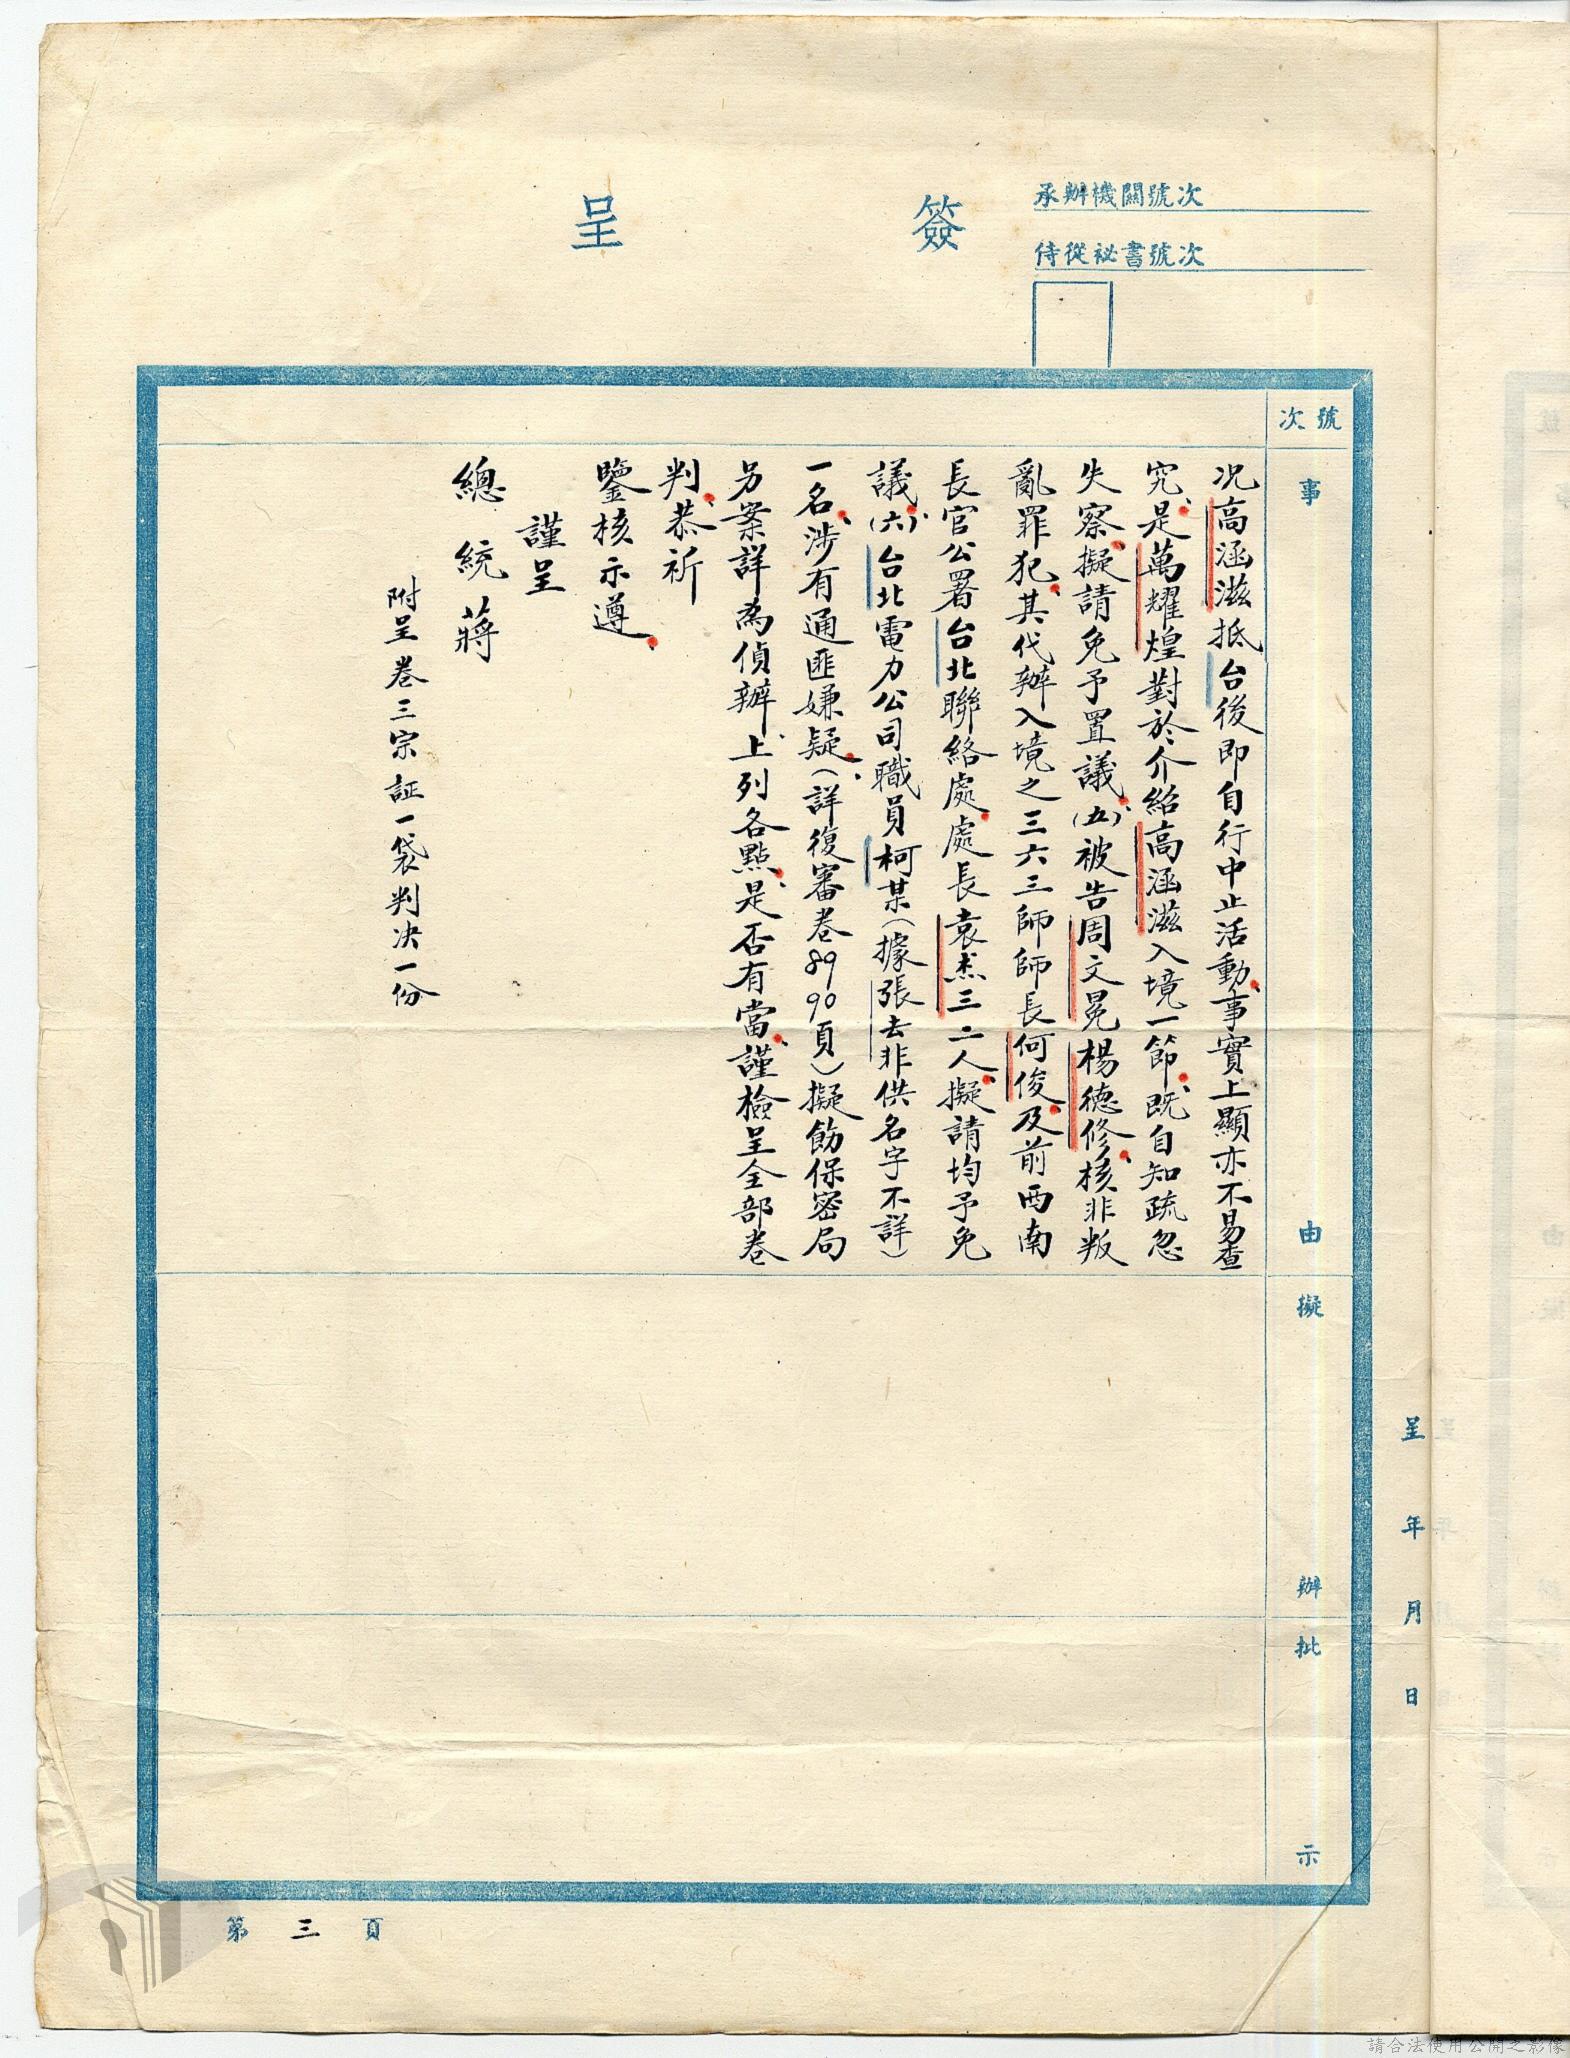 簽呈
承辦機關號次
侍從祕書號次
號次
事由
擬辦
批示
况高涵滋抵台後即自行中止活動、事實上顯亦不易查
究、是萬耀煌對於介紹高涵滋入境一節、既自知疏忽
失察、擬請免予置議、(五)被告周文冕楊德修、核非叛
亂罪犯、其代辦入境之三六三師師長何俊、及前西南
長官公署台北聯絡處、處長袁杰三二人、擬請均予免
議、(六)台北電力公司職員柯某(據張去非供名字不詳)
一名、涉有通匪嫌疑、(詳復審卷89 90頁)擬飭保密局
另案詳為偵辦、上列各點、是否有當、謹檢呈全部卷
判、恭祈
鑒核示遵、
謹呈
總統 蔣
附呈卷三宗証一袋判决一份
呈 年 月 日
第三頁
請合法使用公開之影像